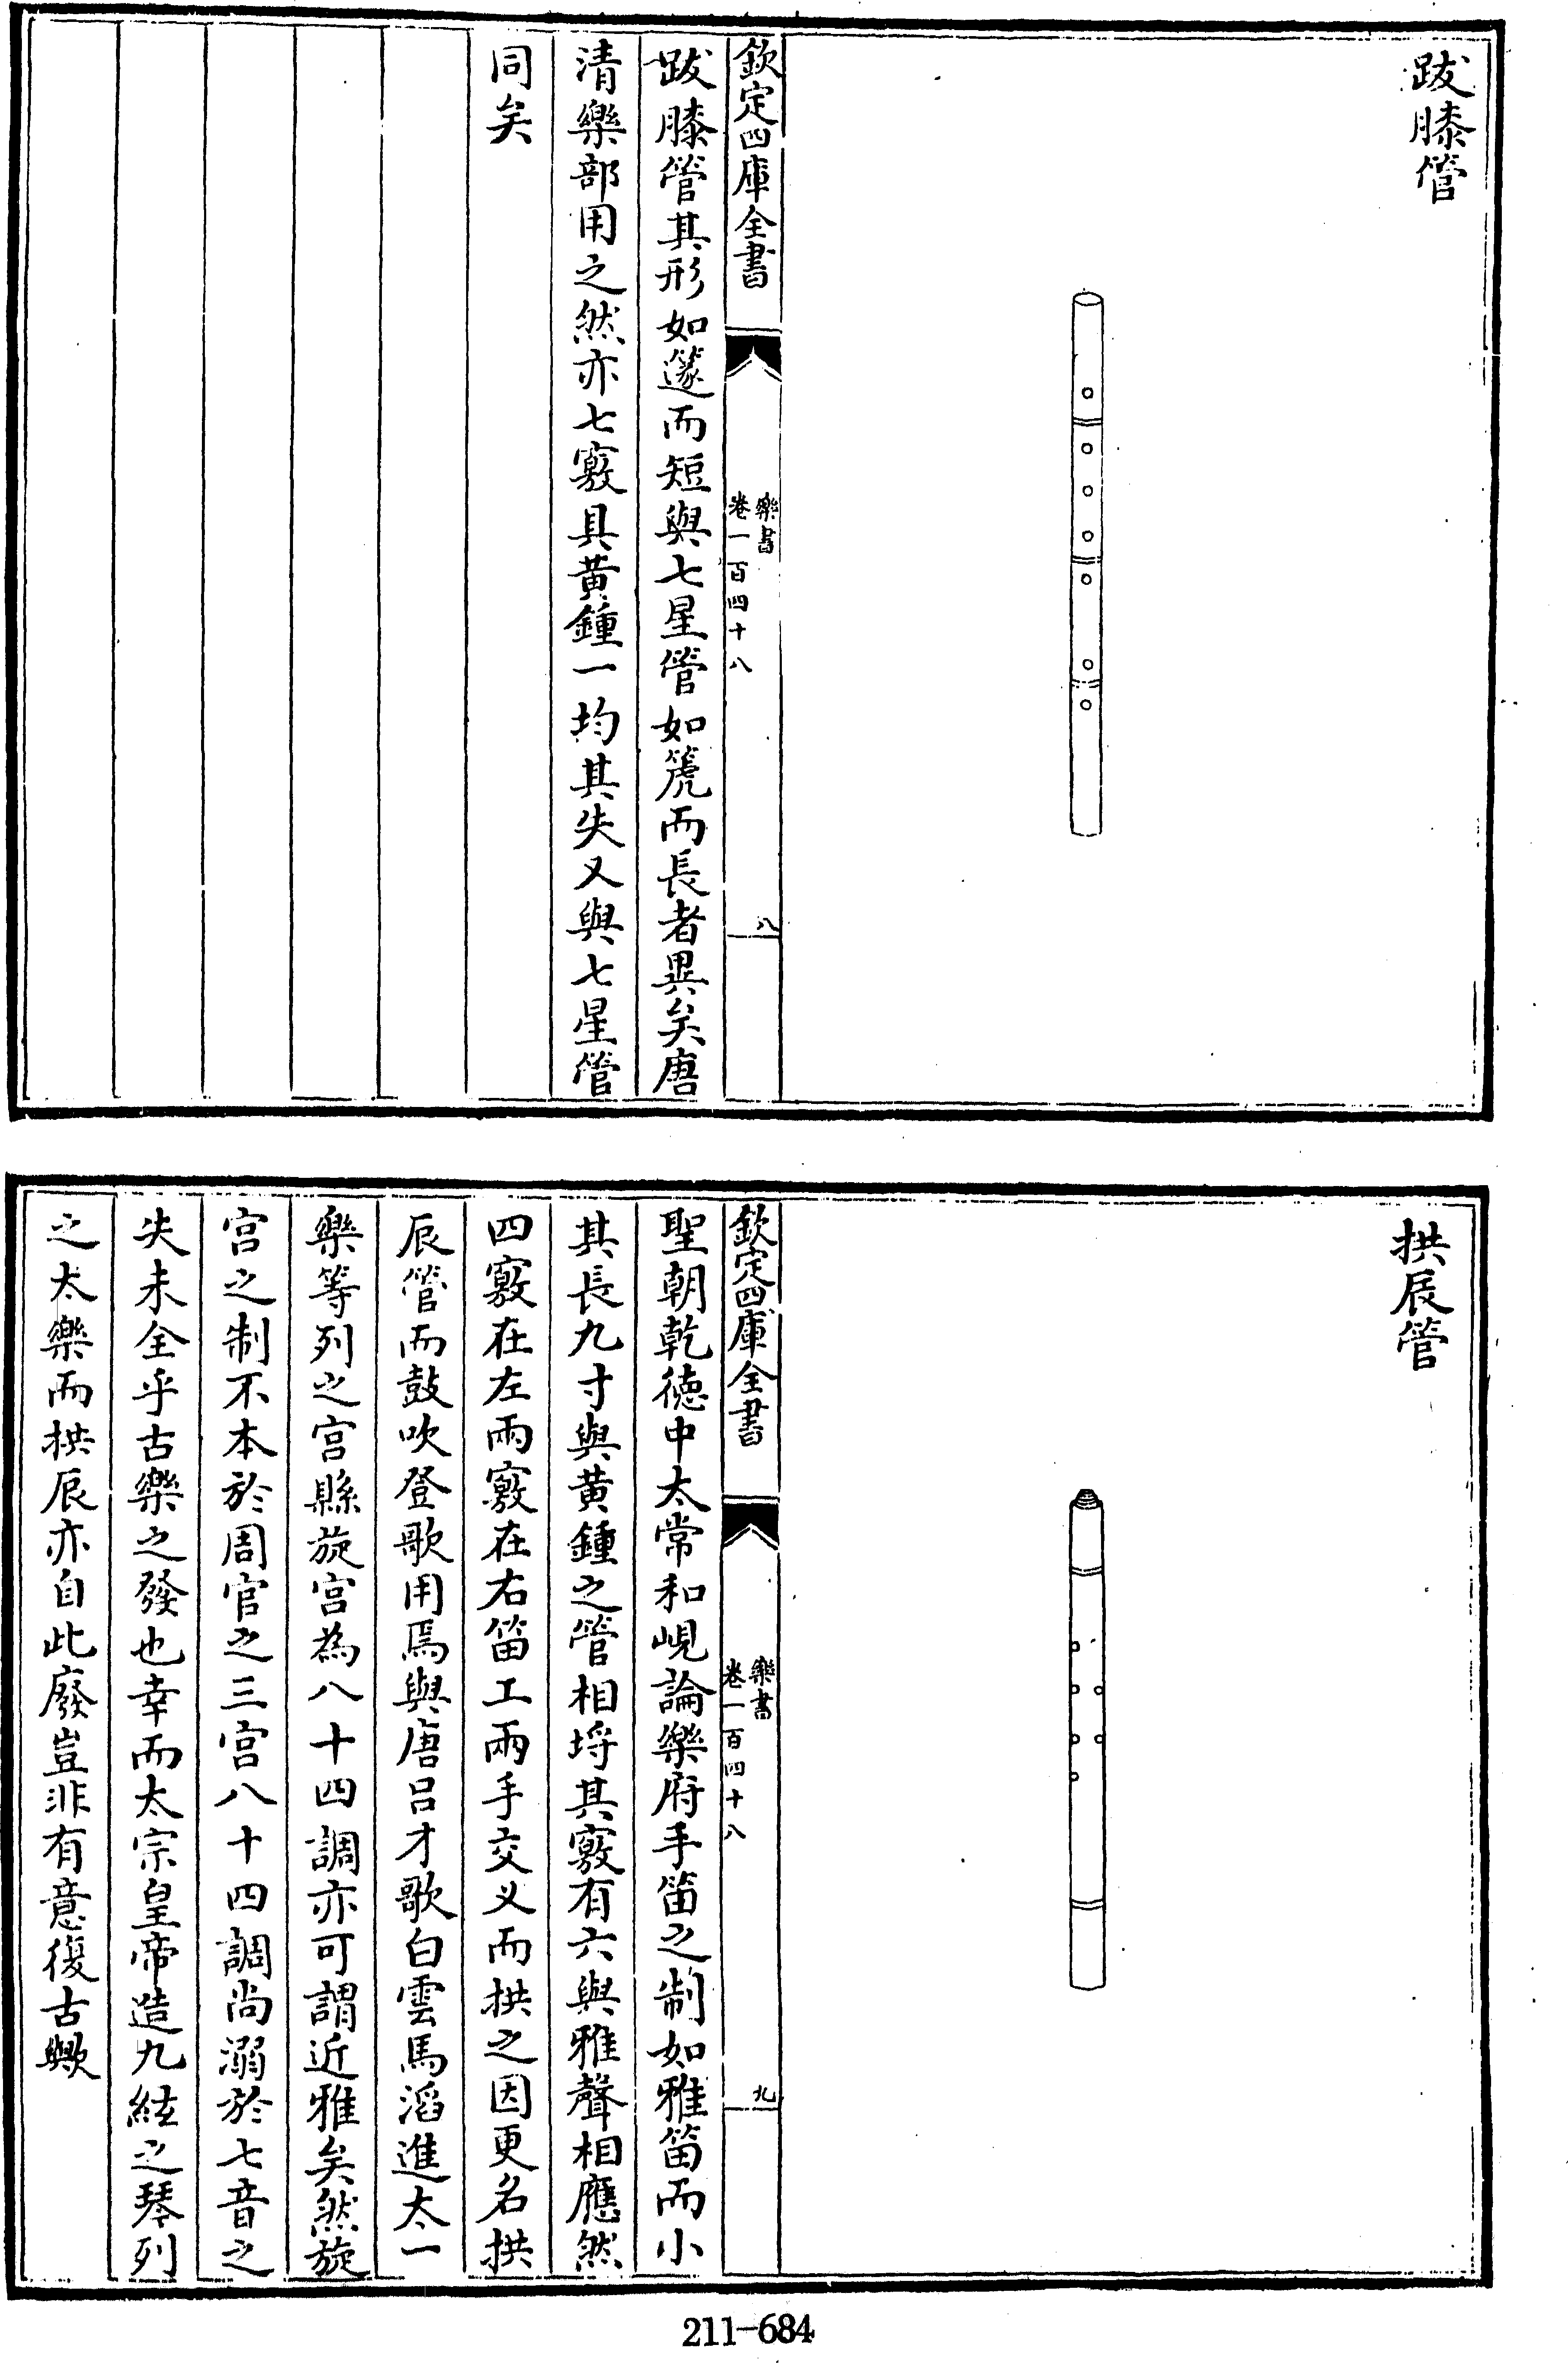 䟦膝管
欽定四庫全書
樂書
卷一百四十八
八
䟦膝管其形如篴而短與七星管如箎而長者異矣唐
清樂部用之然亦七竅具黃鍾一均其失又與七星管
同矣
拱辰管
欽定四庫全書
樂書
卷一百四十八
九
聖朝乾德中太常和峴論樂府手笛之制如雅笛而小
其長九寸與黃鍾之管相埒其竅有六與雅聲相應然
四竅在左兩竅在右笛工兩手交义而拱之因更名拱
辰管而鼓吹登歌用焉與唐呂才歌白雲馬滔進太一
樂等列之宮縣旋宮為八十四調亦可謂近雅矣然旋
宮之制不本於周官之三宮八十四調尚溺於七音之
失未全乎古樂之發也幸而太宗皇帝造九絃之琴列
之太樂而拱辰亦自此廢豈非有意復古歟
211-684